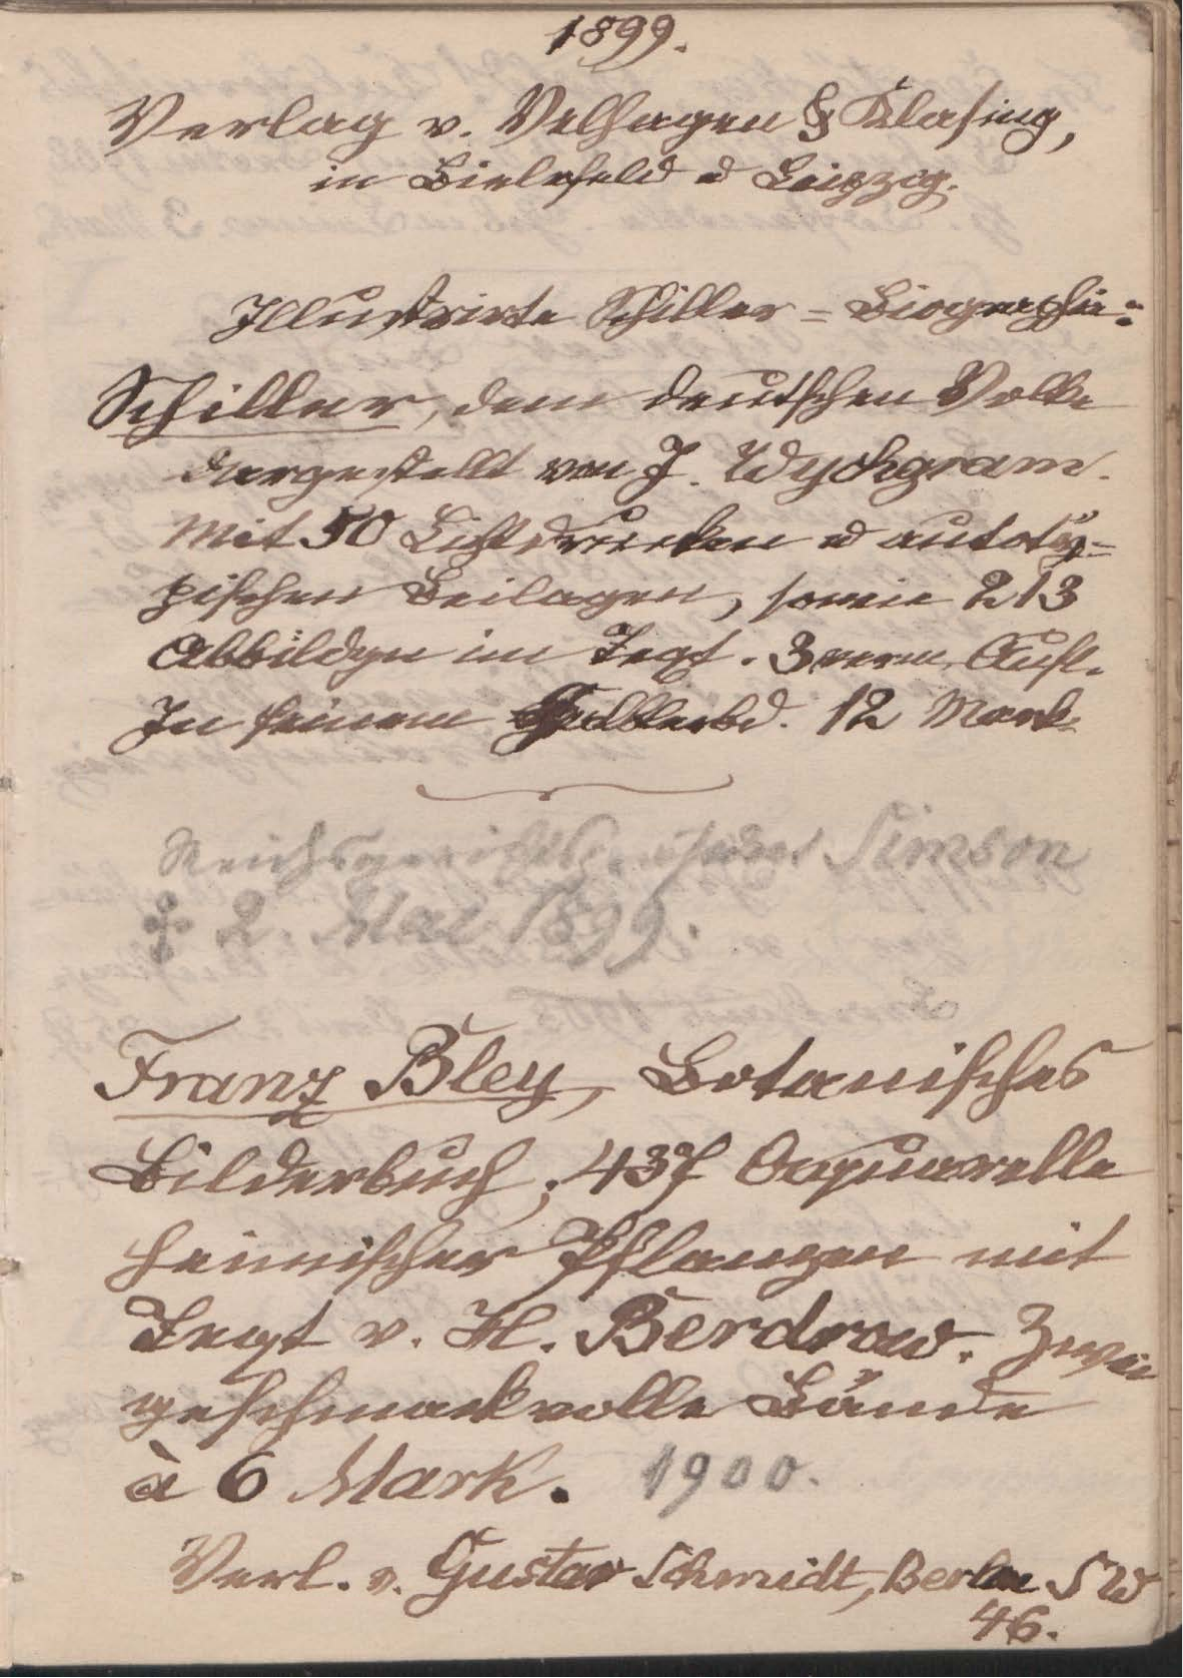 1899.
Verlag v. Velhagen & Klasing,
in Bielefeld u Leipzig.
Illustrirte Schiller = Biographie:
Schiller, dem deutschen Volke
dargestellt von J. Wychgram.
Mit 50 Lichtdrucken u autoty=
pischen Beilagen, sowie 213
Abbildgen im Text. 3 verm. Aufl.
In feinem Halblerbd. 12 Mark
Simson
2. Mai 1899.
Franz Bley, Botanisches
Bilderbuch; 437 Aquarelle
heimischer Pflanzen mit
Text v. H. Berdrow. Zwei
geschmackvolle Bände
à 6 Mark. 1900.
Verl. v. Gustav Schmidt, Berlin SW
46.